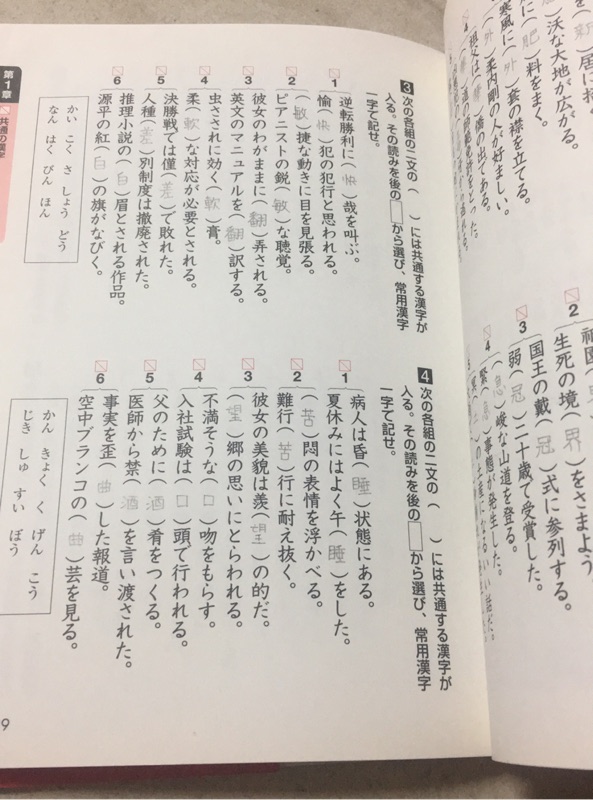 沃な大地が広がる。
に(肥)料をまく。
寒風に(外)套の襟を立てる。
(外)柔内剛の人が好ましい。
4
2
生死の境(界)をさまよう
3
国王の戴(冠)式に参列する。
弱(冠)二十歳で受賞した。
4
(急)峻な山道を登る。
緊(急)事態が発生した。
3 次の各組の二文の( )には共通する漢字が
入る。その読みを後の□から選び、常用漢字
一字で記せ。
1
逆転勝利に(快)哉を叫ぶ。
愉(快)犯の犯行と思われる。
2
(敏)捷な動きに目を見張る。
ピアニストの鋭(敏)な聴覚。
3
彼女のわがままに(翻)弄される。
英文のマニュアルを(翻)訳する。
4
虫さされに効く(軟)膏。
柔(軟)な対応が必要とされる。
5
決勝戦では僅(差)で敗れた。
人種(差)別制度は撤廃された。
6
推理小説の(白)眉とされる作品。
源平の紅(白)の旗がなびく。
かい こく さ しょう どう
なん はく びん ほん
4 次の各組の二文の( )には共通する漢字が
入る。その読みを後の□から選び、常用漢字
一字で記せ。
1
病人は昏(睡)状態にある。
夏休みにはよく午(睡)をした。
2
(苦)悶の表情を浮かべる。
難行(苦)行に耐え抜く。
3
彼女の美貌は羨(望)の的だ。
(望)郷の思いにとらわれる。
4
不満そうな(口)吻をもらす。
入社試験は(口)頭で行われる。
5
父のために(酒)肴をつくる。
医師から禁(酒)を言い渡された。
6
事実を歪(曲)した報道。
空中ブランコの(曲)芸を見る。
かん きょく く げん こう
じき しゅ すい ぼう
第1章
共通の漢字
9